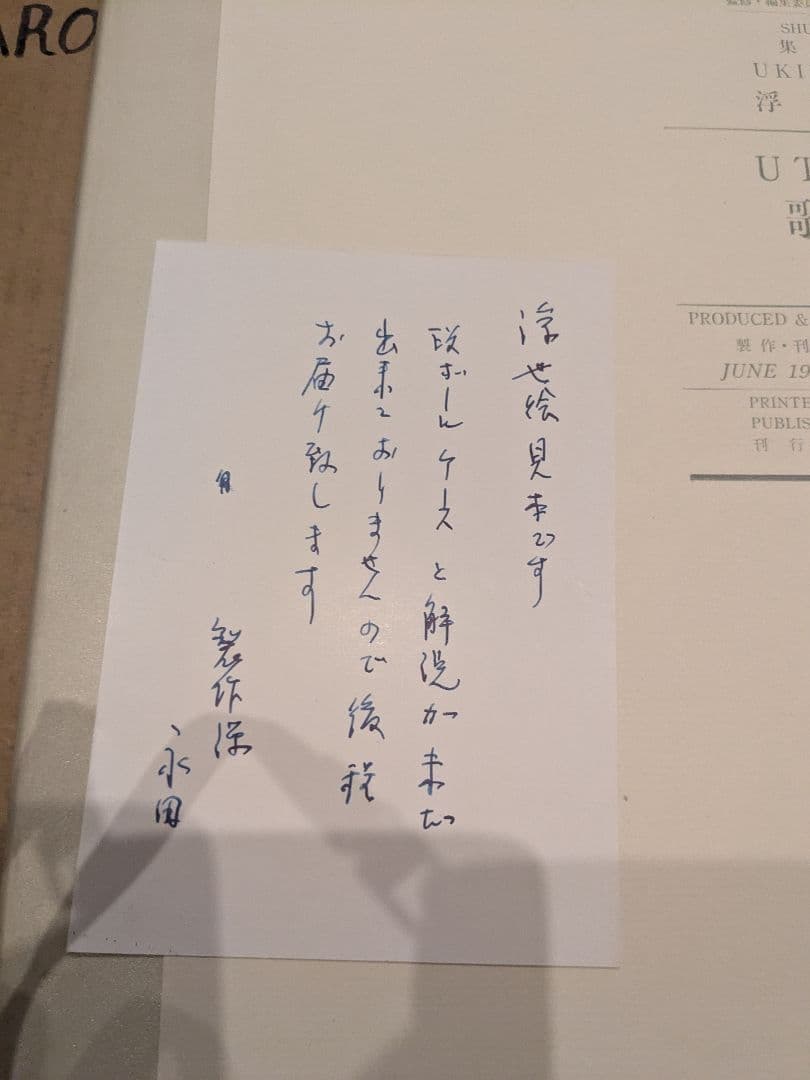 浮世絵見本です
段ボールケースと解説が未だ
出来ておりませんので後程
お届け致します
製作課
永田
ARO
SHU
集
UKI
浮
UT
歌
PRODUCED &
製作・刊
JUNE 19
PRINTE
PUBLIS
刊 行